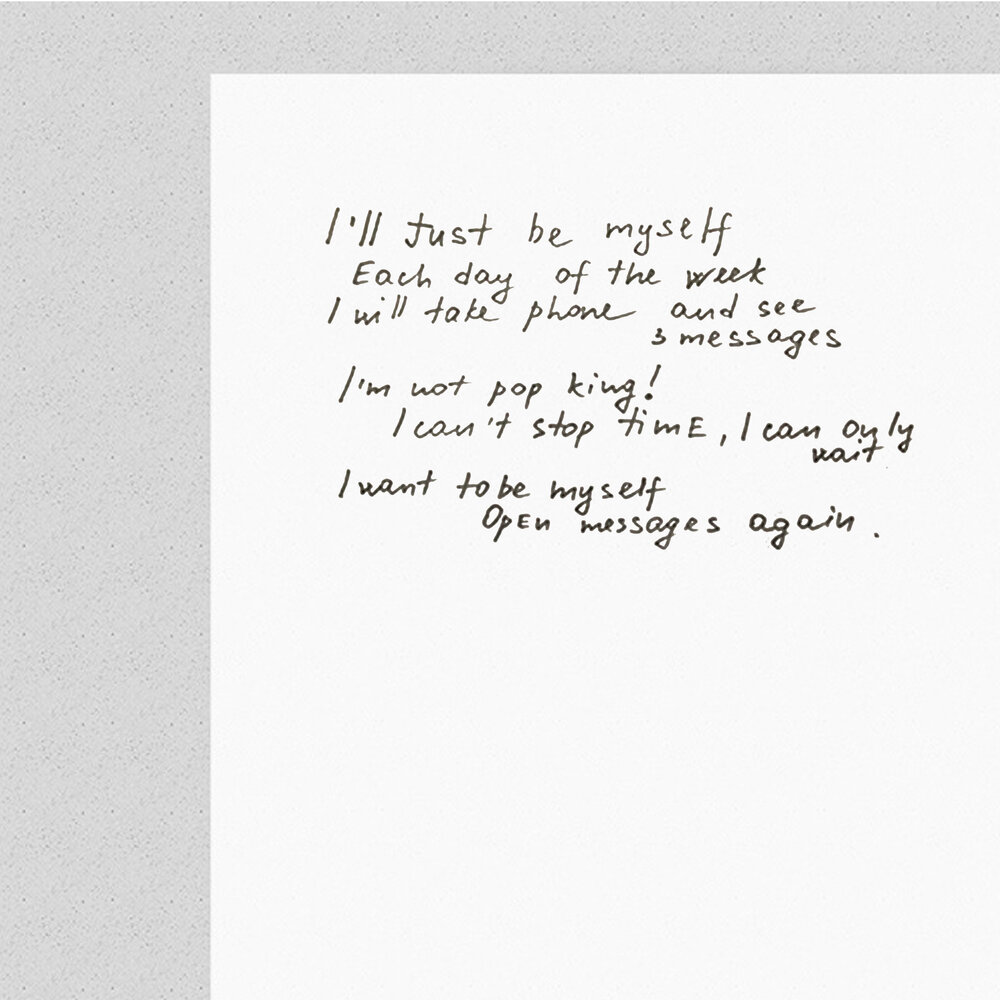 I'll Just be myself
Each day of the week
I will take phone and see
3 messages
I'm not pop king!
I can't stop timE, I can only
wait
I want to be myself
OpEn messages again.